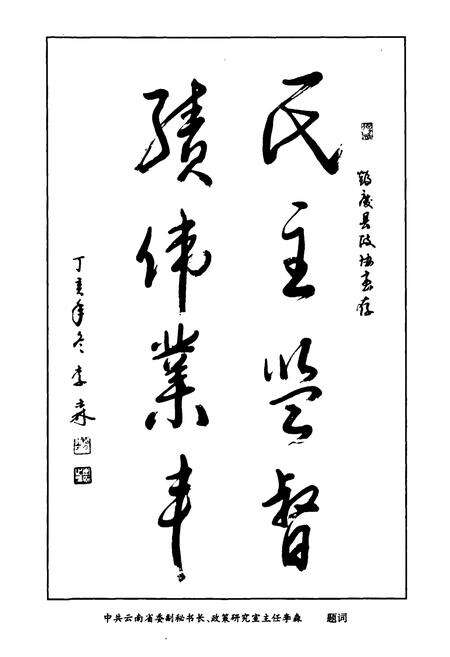 鹤庆县政协惠存
民主监督
绩伟業丰
丁亥年冬 李森
中共云南省委副秘书长、政策研究室主任李森 题词